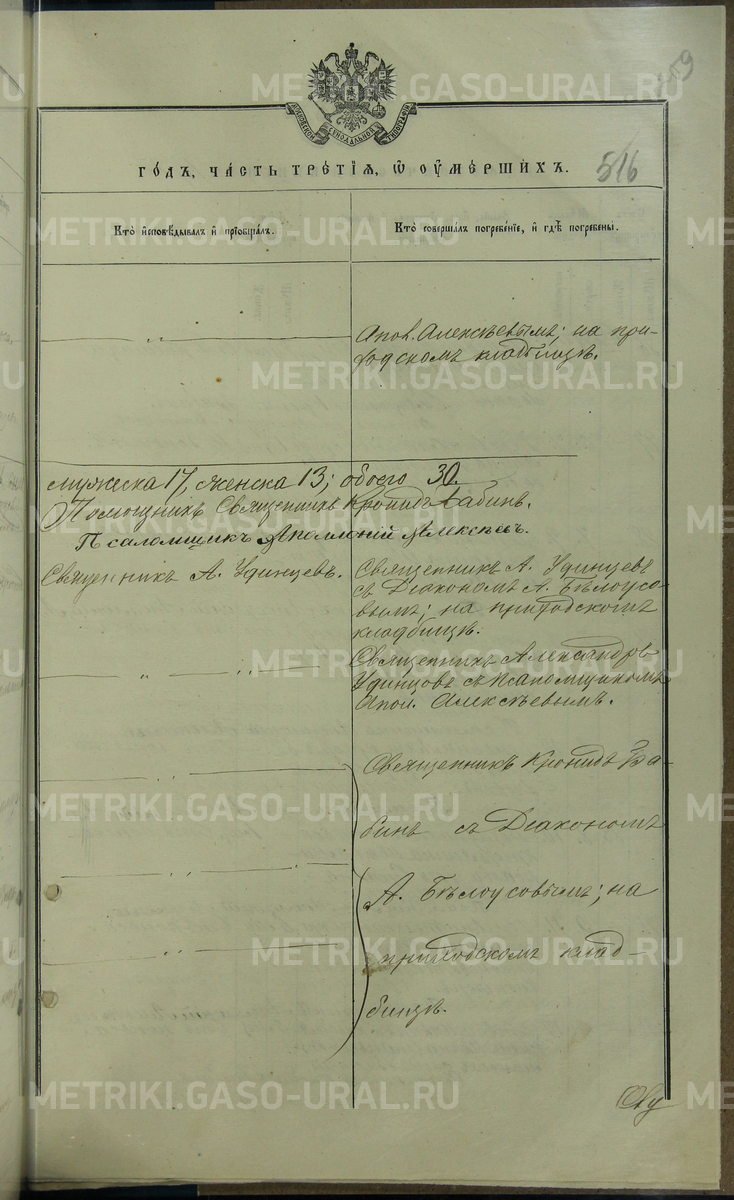 МОСКОВСКОЙ СИНОДАЛЬНОЙ ТИПОГРАФІИ
169
Го́дъ, ча́сть тре́тїѧ, ѡ҆ ᲂу҆ме́ршихъ.
516
Кто̀ и҆сповѣ́дывалъ и҆ прїѡбща́лъ.
Кто̀ соверша́лъ погребе́нїе, и҆ гдѣ̀ погребены̀.
— „ —
Апол. Алексѣевымъ; на при-
ходскомъ кладбищѣ.
мужеска 17, женска 13; обоего 30.
Помощникъ Священникъ Кронидъ Бабинъ.
Псаломщикъ Аполлоній Алексѣевъ.
Священникъ А. Удинцевъ.
Священникъ А. Удинцевъ
съ Діакономъ А. Бѣлоусо-
вымъ; на приходскомъ
кладбищѣ.
— „ — „ —
Священникъ Александръ
Удинцовъ съ псаломщикомъ
Апол. Алексѣевымъ.
— „ — „ —
Священникъ Кронидъ Ба-
бинъ съ Діакономъ
— „ — „ —
А. Бѣлоусовымъ; на
— „ — „ —
приходскомъ клад-
бищѣ.
METRIKI.GASO-URAL.RU